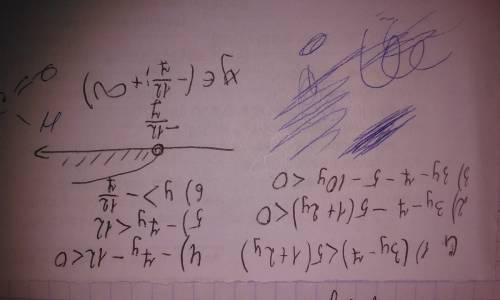 1) (3y-7)<5(1+2y)
2) 3y-7-5(1+2y)<0
3) 3y-7-5-10y<0
4) -7y-12<0
5) -7y<12
6) y>-12/7
-12/7
y∈(-12/7; +∞)
O
H